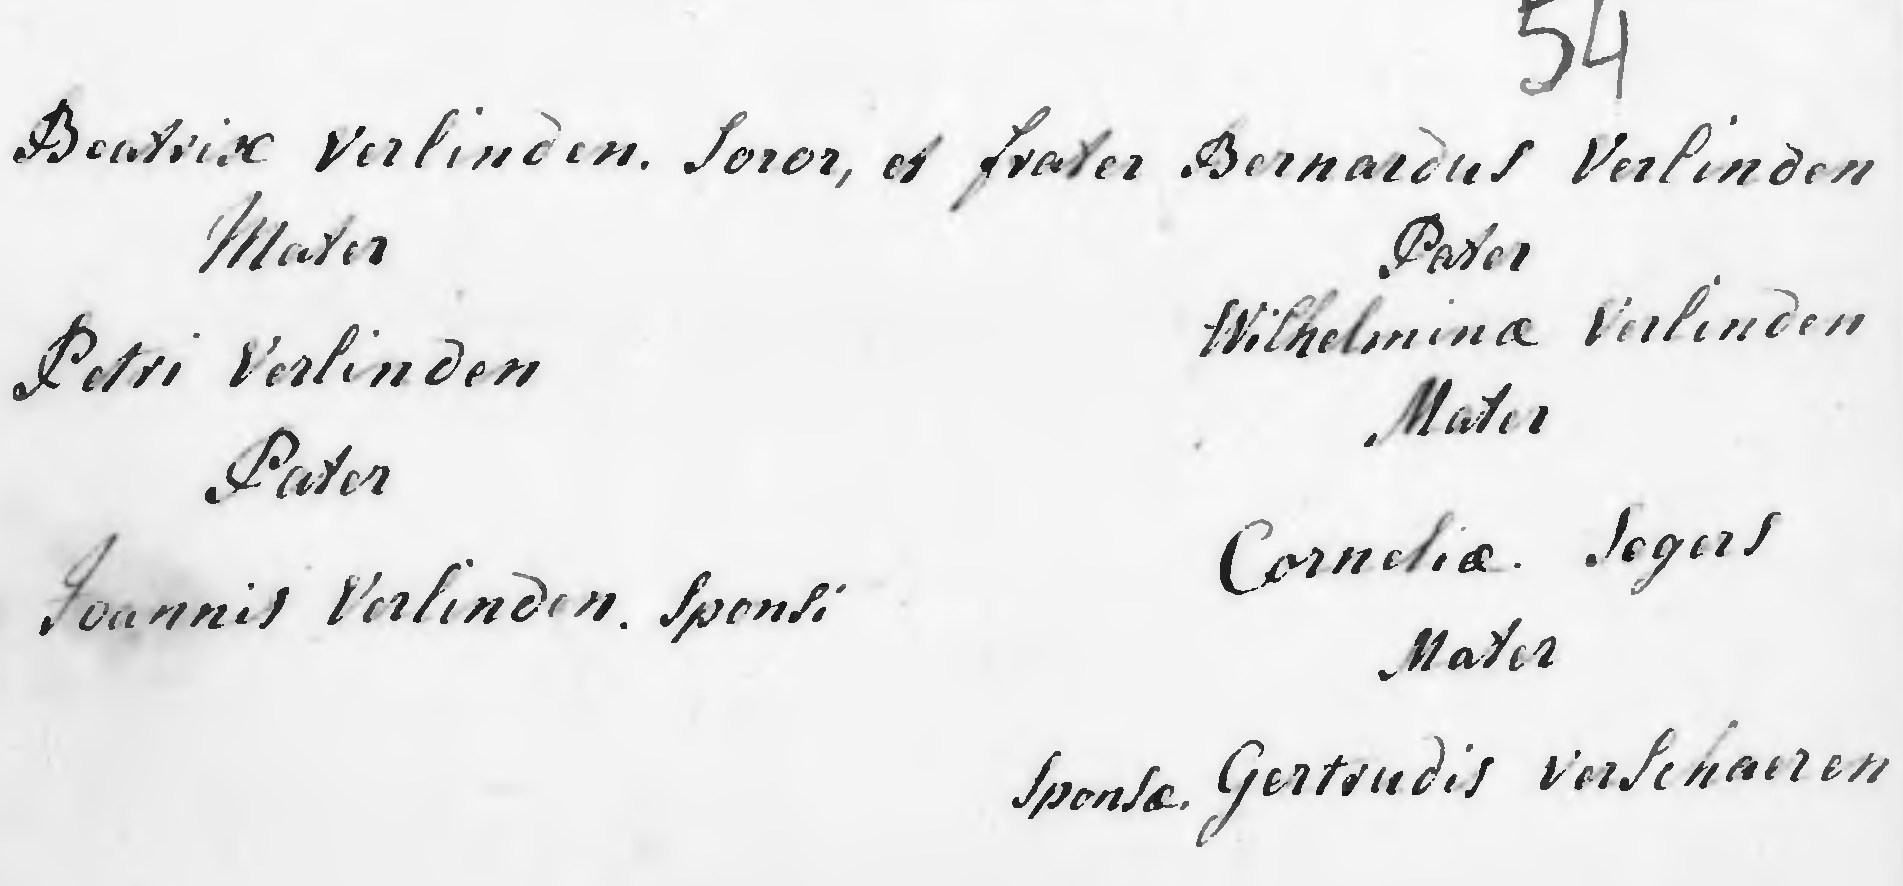 54
Beatrix Verlinden. Soror, et frater Bernardus Verlinden
Mater Pater
Wilhelminæ Verlinden
Petri Verlinden
Mater
Pater
Corneliæ. Segers
Joannis Verlinden. Sponsi
Mater
Sponsæ. Gertrudis VerSchaeren